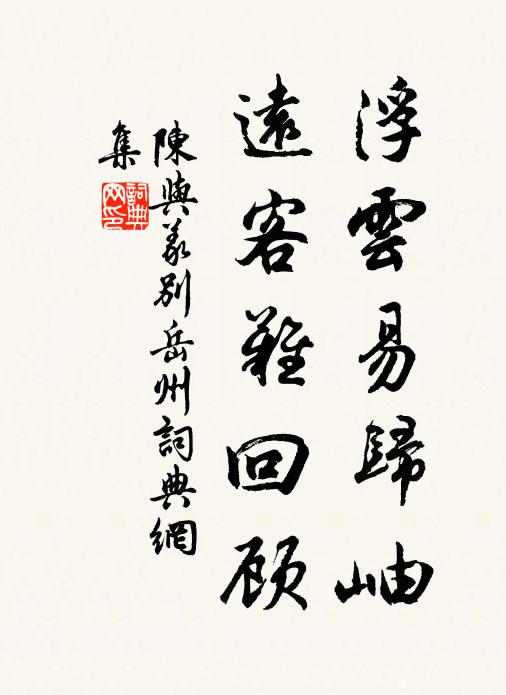 浮雲易歸岫
遠客難回顾
陳與義別岳州詞典網
集
詞典网印